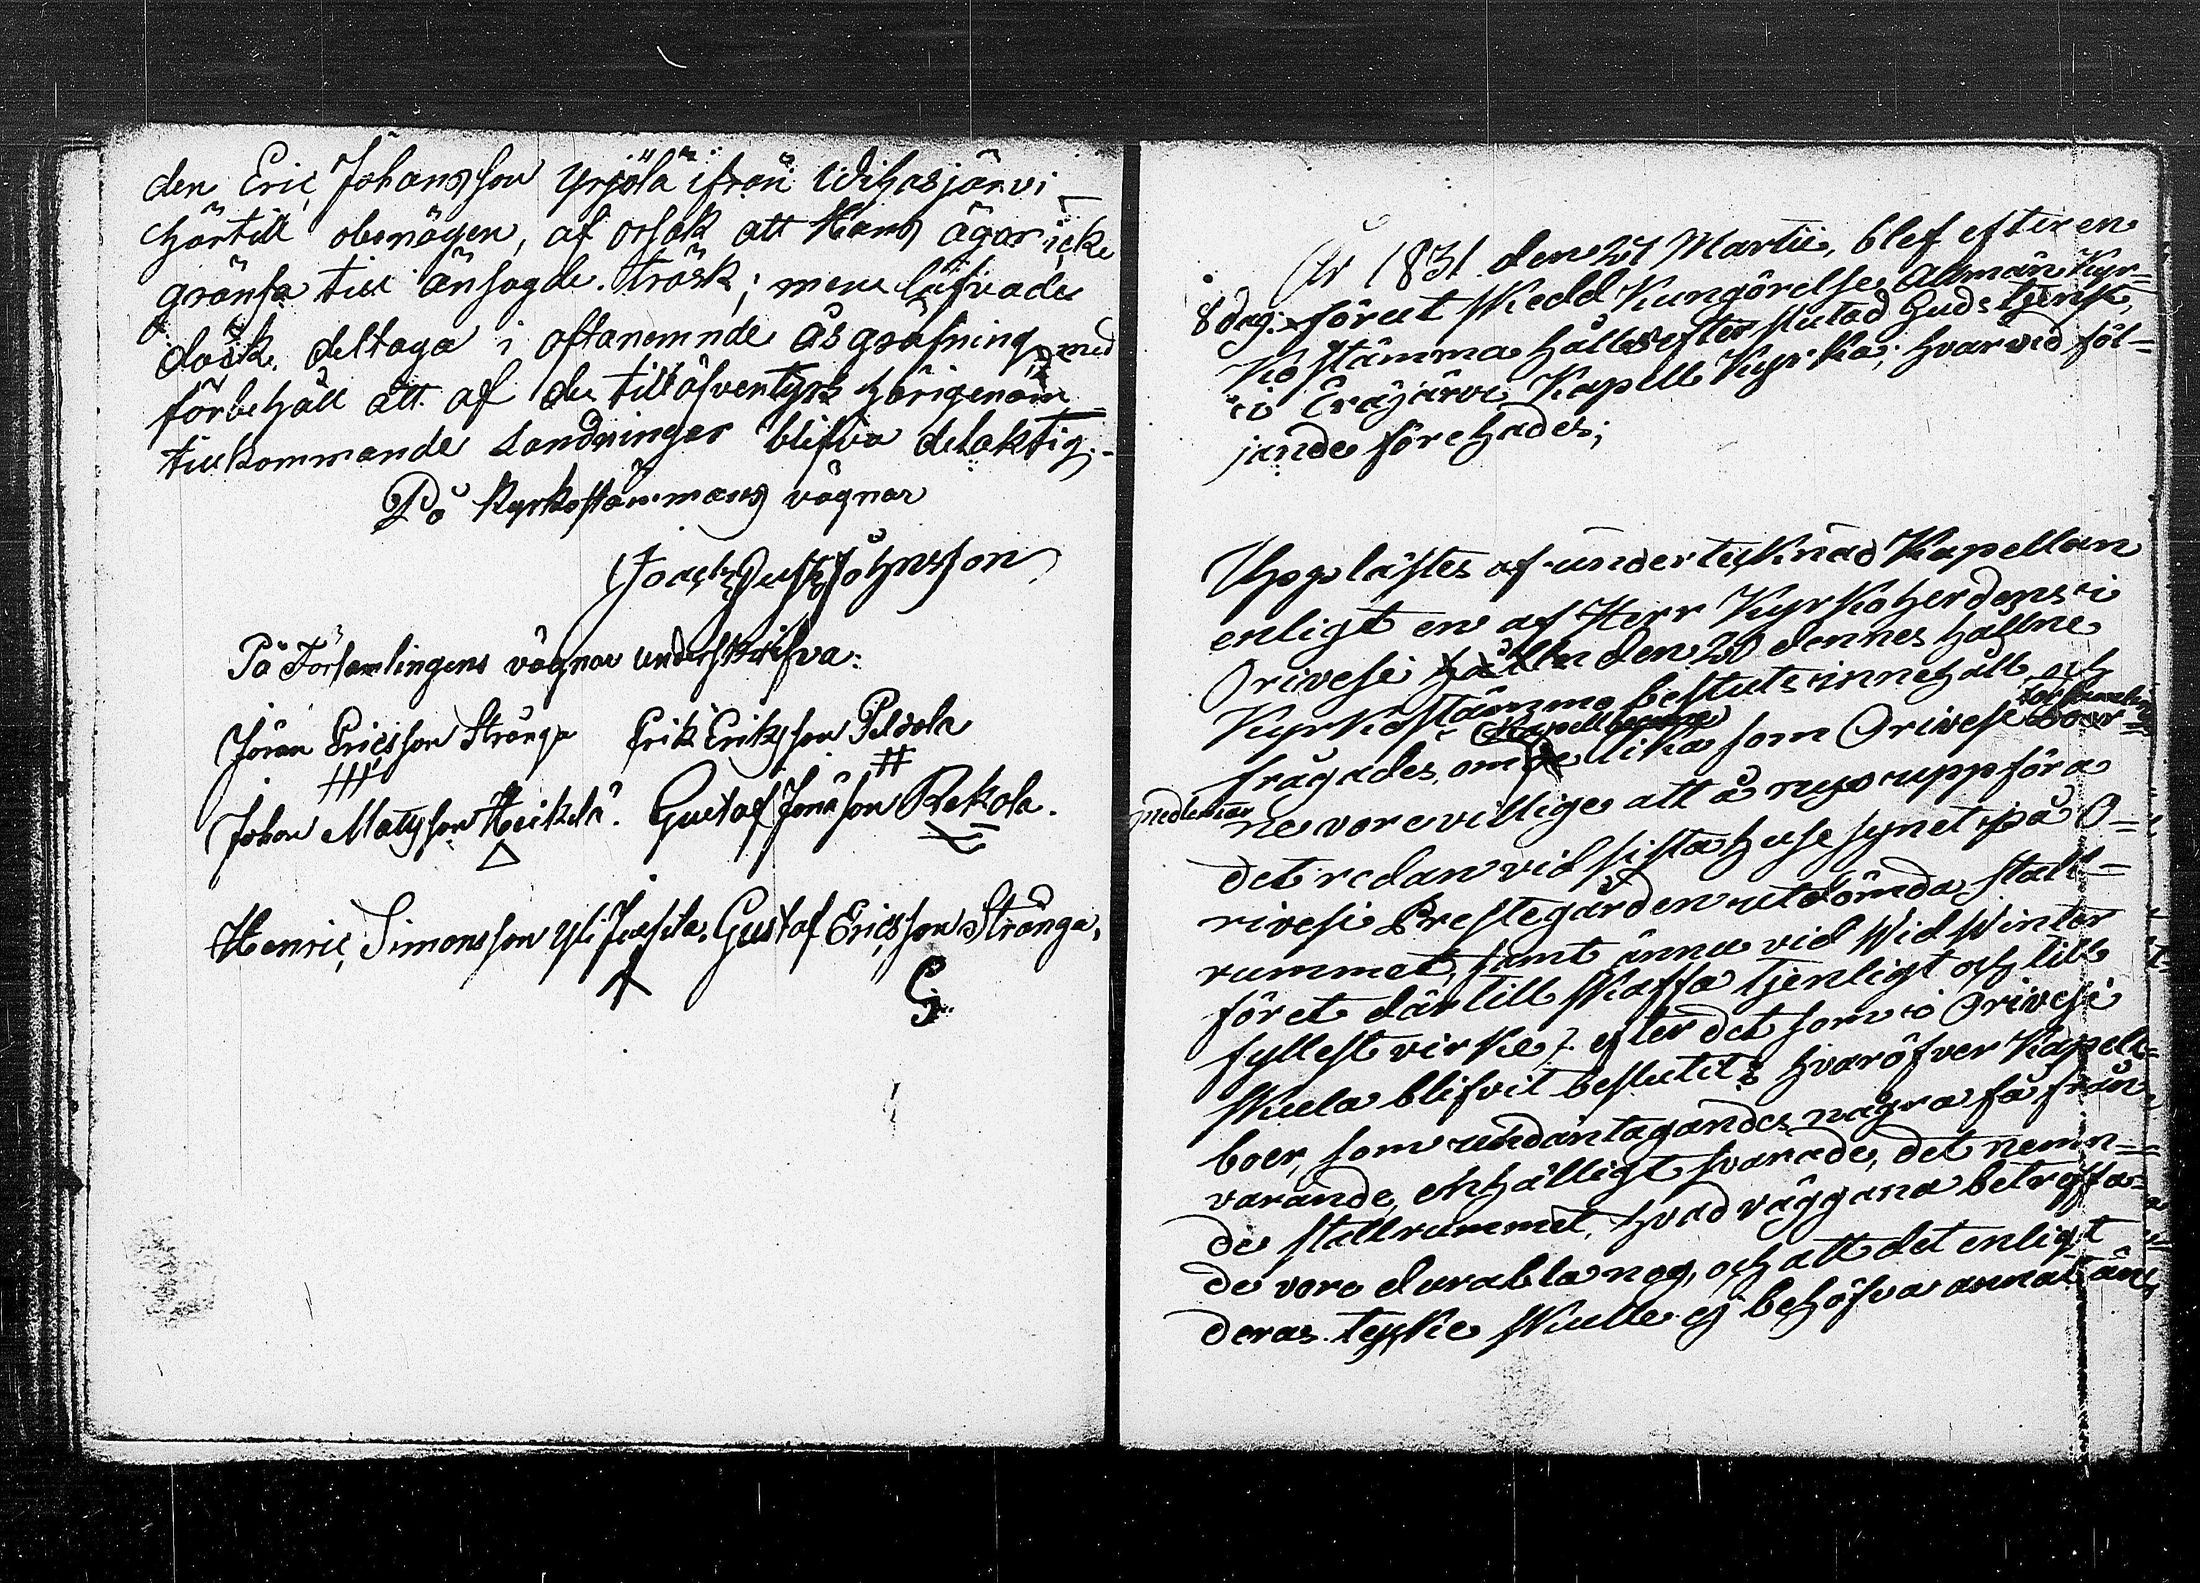 den Eric Johansson Yrjölä ifrån Wihasjärvi
härtill obenägen, af orsak att Hans ägor icke
gränsa till ansagde träsk; men lufvade
dock deltaga i oftanemnde åsgräfning, med
förbehåll att af de till äfventyrs härigenom
tillkommande landningar blifva delaktig.
På Kyrkostämmans vägnar
Joach: Gust: Johnsson
På Församlingens vägnar underskrifva:
Jöran Ericsson Strånga Erik Eriksson Peldola
Johan Matsson Heikilä. Gustaf Jonasson Rekola.
Henric Simonsson Yli Juusila. Gustaf Ericsson Strånga,
G.
År 1831 den 27 Martii, blef efter en
8 dag: förut skedd Kungörelse Allmän Kyr=
ko stämma hållen efter slutad Gudstjenst,
i Eräjärvi Kapell Kyrka; hvarvid föl=
jande förehades;
Upplästes af undertecknad Kapellan
enligt en af Herr Kyrkoherdens i
Orivesi hållen den 20 dennes hållne
Kyrkostämma besluts innehåll och
Kapellboerne Församlings
frågades, om de lika som Orivesi Boer=
medlemar
ne vore villige att å nyo uppföra
det redan vid sista huse synet på O=
rivesi Prestegården utdömda stall=
rummet, samt ännu vid Wid Winter
föret där till skaffa tjenligt och till
fyllest virke, efter det som i Orivesi
skula blifvit beslutet; hvaröfver Kapell=
boer, som undantagandes några få från
varande, enhälligt svarade, det nemn=
de stallrummet, hvad väggarna betreffa=
de vore durabla nog, och att det enligt
deras tycke skulle ej behöfva annat än